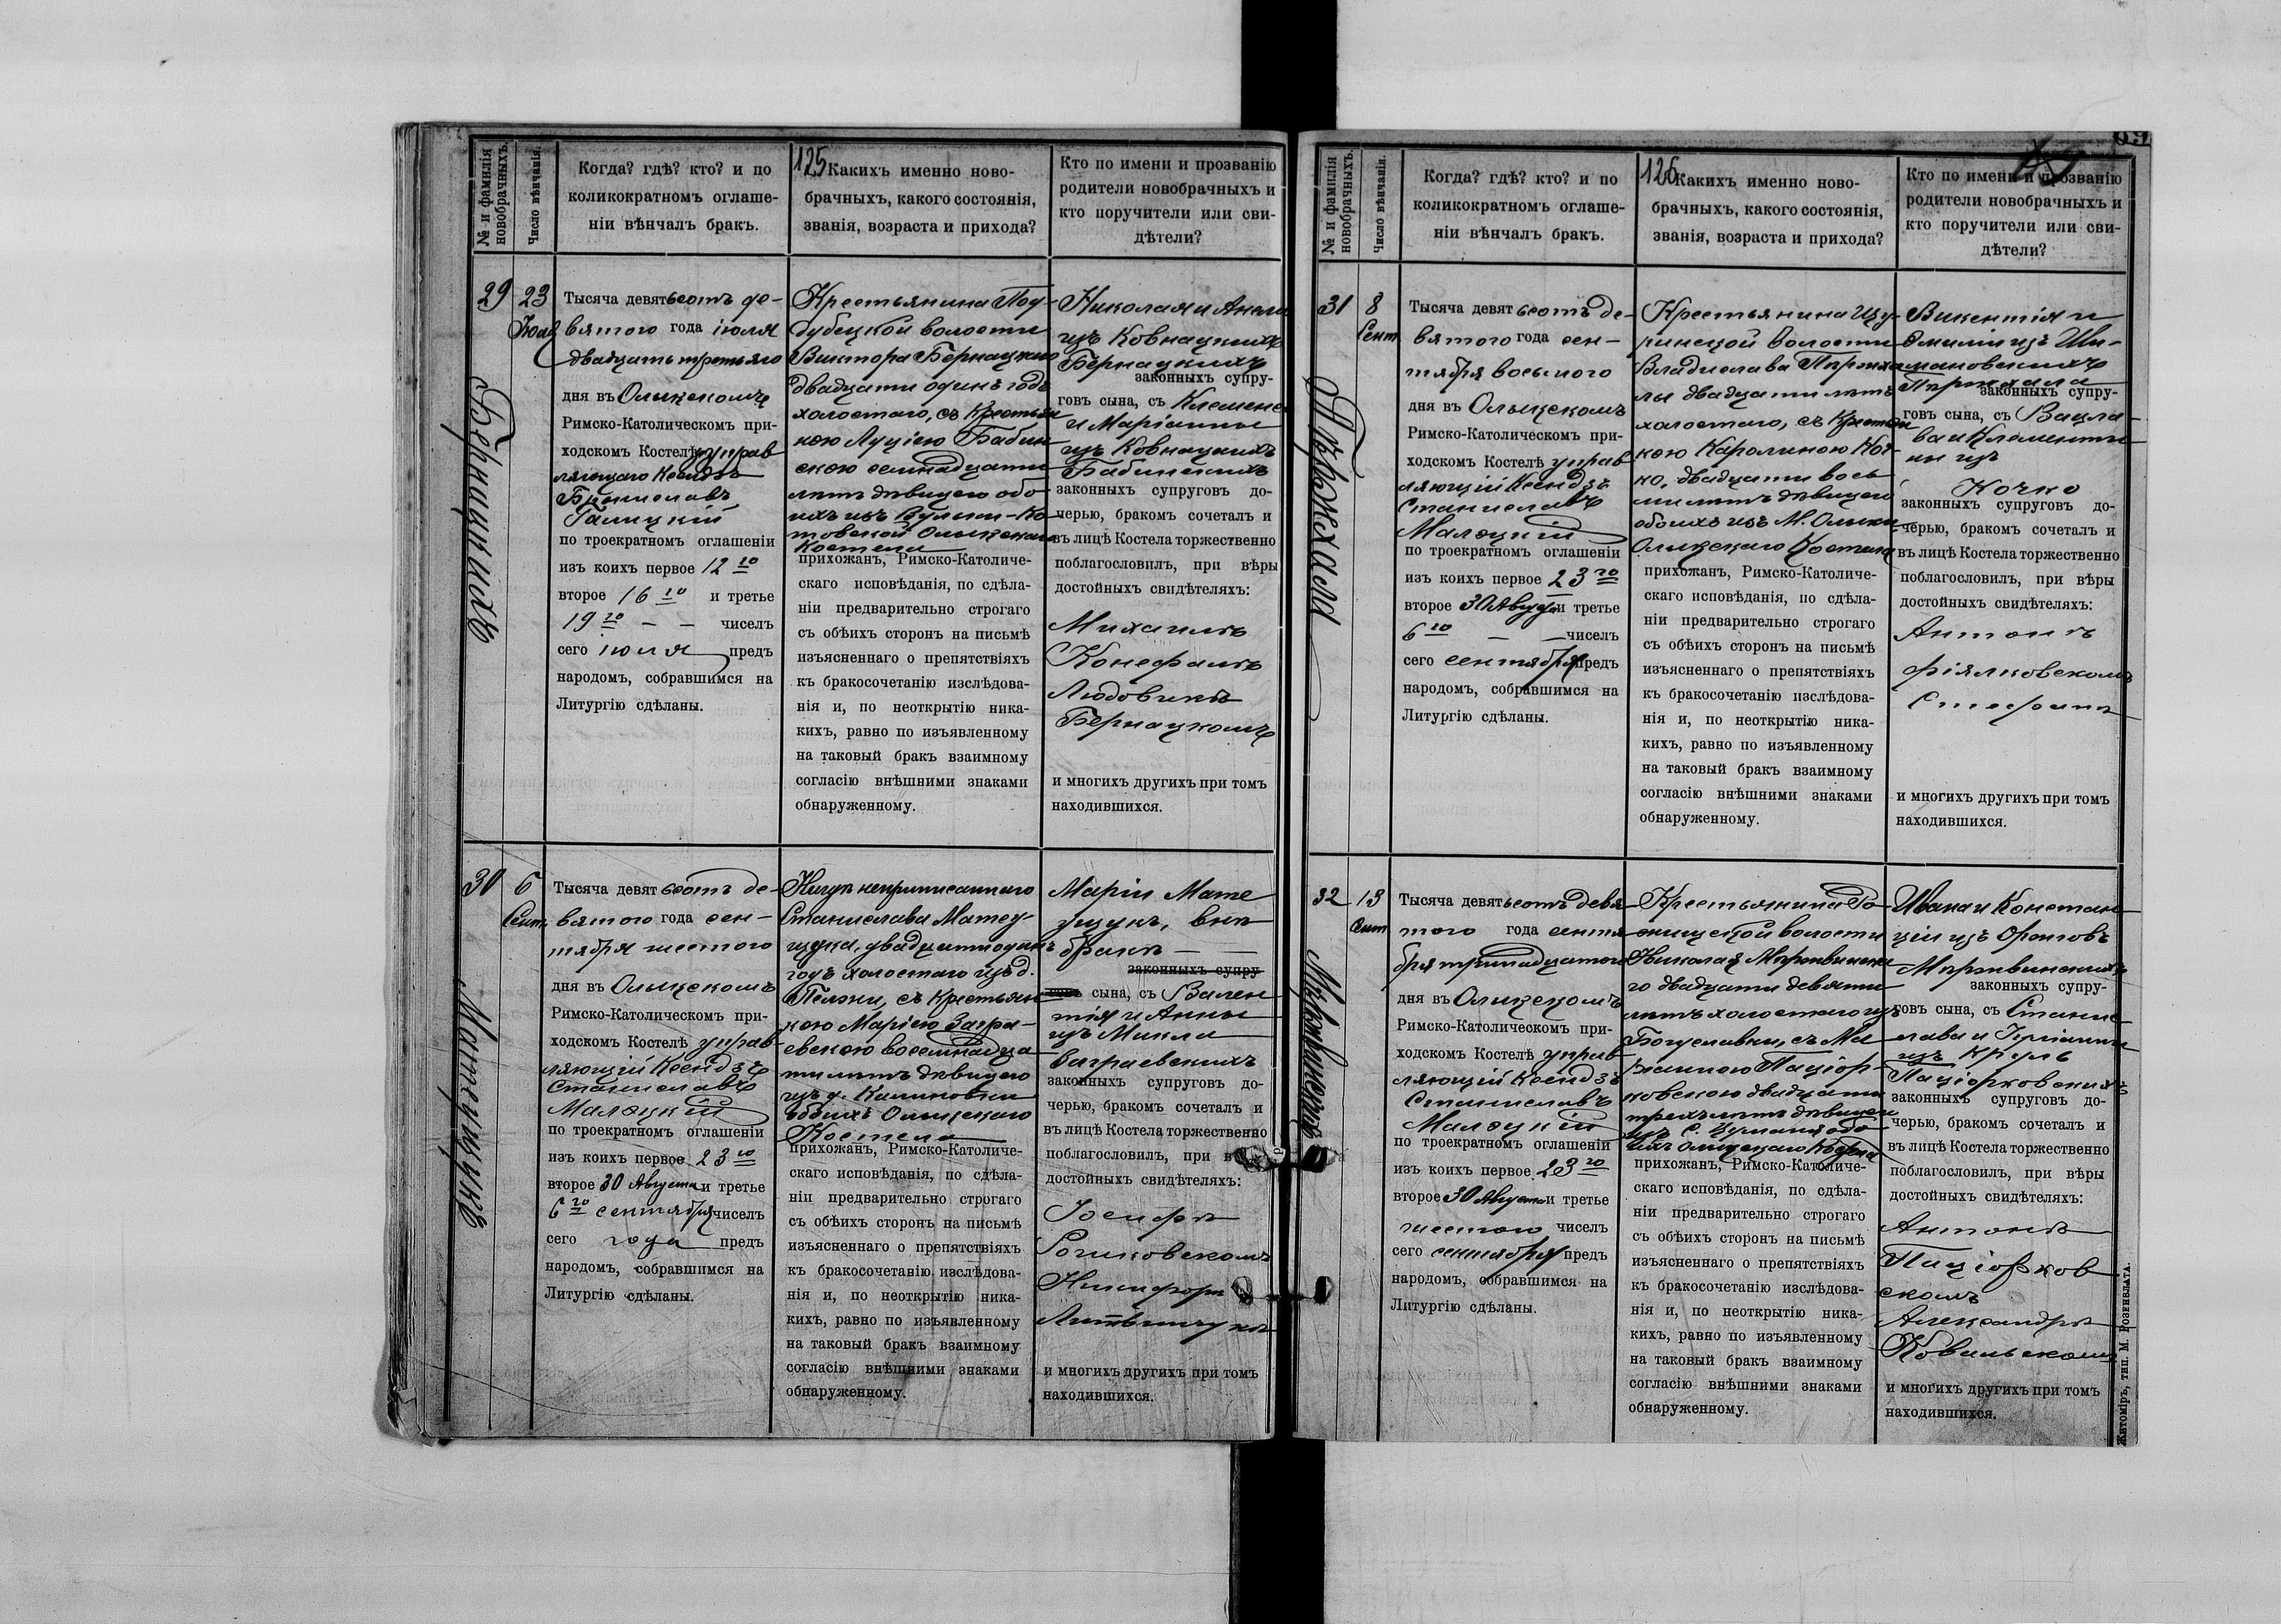 125
№ и фамилія
новобрачныхъ.
Число вѣнчанія.
Когда? гдѣ? кто? и по
коликократномъ оглаше-
ніи вѣнчалъ бракъ.
Какихъ именно ново-
брачныхъ, какого состоянія,
званія, возраста и прихода?
Кто по имени и прозванію
родители новобрачныхъ и
кто поручители или сви-
дѣтели?
29
Бернацкихъ
23
Юля
Тысяча девятьсотъ де-
вятого года іюля
двадцать третьяго
дня въ Олыцскомъ
Римско-Католическомъ при-
ходскомъ Костелѣ управ
ляющаго Ксендзъ
Брониславъ
Галицкій
по троекратномъ оглашеніи
изъ коихъ первое 12го
второе 16го и третье
19го — — чиселъ
сего іюля предъ
народомъ, собравшимся на
Литургію сдѣланы.
Крестьянина Под-
дубецкой волости
Виктора Бернацкаго
двадцати одинъ годъ
холостаго, съ крестьян
кою Луціею Бабин
скою семнадцати
лѣтъ дѣвицею обо
ихъ изъ Вульки-Ко
товской Олыцскаго
Костела
прихожанъ, Римско-Католиче-
скаго исповѣданія, по сдѣла-
ніи предварительно строгаго
съ обѣихъ сторонъ на письмѣ
изъясненнаго о препятствіяхъ
къ бракосочетанію изслѣдова-
нія и, по неоткрытію ника-
кихъ, равно по изъявленному
на таковый бракъ взаимному
согласію внѣшними знаками
обнаруженному.
Николая и Анели
изъ Ковнацкихъ
Бернацкихъ
законныхъ супру-
говъ сына, съ Клеменса
и Маріанны
изъ Ковнацкихъ
Бабинскихъ
законныхъ супруговъ до-
черью, бракомъ сочеталъ и
въ лицѣ Костела торжественно
поблагословилъ, при вѣры
достойныхъ свидѣтеляхъ:
Михаилѣ
Конефалѣ
Людовикѣ
Бернацкомъ
и многихъ другихъ при томъ
находившихся.
30
Матещукъ
6
Сент.
Тысяча девятьсотъ де-
вятого года сен-
тября шестого
дня въ Олыцскомъ
Римско-Католическомъ при-
ходскомъ Костелѣ управ
ляющій Ксендзъ
Станиславъ
Малэцкій
по троекратномъ оглашеніи
изъ коихъ первое 23го
второе 30 Августа и третье
6го сентября чиселъ
сего года предъ
народомъ, собравшимся на
Литургію сдѣланы.
Нигдѣ неприписаннаго
Станислава Матеу-
щука, двадцати одинъ
годъ холостаго изъ д.
Пелжи, съ крестьян
кою Маріею Загра-
евскою восемнадца
ти лѣтъ дѣвицею
изъ д. Калиновки
обоихъ Олыцскаго
Костела
прихожанъ, Римско-Католиче-
скаго исповѣданія, по сдѣла-
ніи предварительно строгаго
съ обѣихъ сторонъ на письмѣ
изъясненнаго о препятствіяхъ
къ бракосочетанію изслѣдова-
нія и, по неоткрытію ника-
кихъ, равно по изъявленному
на таковый бракъ взаимному
согласію внѣшними знаками
обнаруженному.
Маріи Мате
ущукъ, внѣ
брака —
законныхъ супру-
говъ сына, съ Вален
тія и Анны
изъ Микла
Заграевскихъ
законныхъ супруговъ до-
черью, бракомъ сочеталъ и
въ лицѣ Костела торжественно
поблагословилъ, при
достойныхъ свидѣтеляхъ:
Іосифѣ
Рошковскомъ
Никифорѣ
Литвинчукѣ
и многихъ другихъ при томъ
находившихся.
69
126
№ и фамилія
новобрачныхъ.
Число вѣнчанія.
Когда? гдѣ? кто? и по
коликократномъ оглаше-
ніи вѣнчалъ бракъ.
Какихъ именно ново-
брачныхъ, какого состоянія,
званія, возраста и прихода?
Кто по имени и прозванію
родители новобрачныхъ и
кто поручители или сви-
дѣтели?
31
Пържхала
8
Сент
Тысяча девятьсотъ де-
вятого года сен-
тября восьмого
дня въ Олыцскомъ
Римско-Католическомъ при-
ходскомъ Костелѣ управ
ляющій Ксендзъ
Станиславъ
Малэцкій
по троекратномъ оглашеніи
изъ коихъ первое 23го
второе 30 Августа и третье
6го — — чиселъ
сего сентября предъ
народомъ, собравшимся на
Литургію сдѣланы.
Крестьянина Щу-
ринской волости
Владислава Пържха
лы двадцати лѣтъ
холостаго, съ крестьян
кою Каролиною Коч
ко, двадцати вось
ми лѣтъ дѣвицею
обоихъ изъ М. Олыки
Олыцскаго Костела
прихожанъ, Римско-Католиче-
скаго исповѣданія, по сдѣла-
ніи предварительно строгаго
съ обѣихъ сторонъ на письмѣ
изъясненнаго о препятствіяхъ
къ бракосочетанію изслѣдова-
нія и, по неоткрытію ника-
кихъ, равно по изъявленному
на таковый бракъ взаимному
согласію внѣшними знаками
обнаруженному.
Викентія и
Эмиліи изъ Ши-
мановскихъ
Пържхала
законныхъ супру-
говъ сына, съ Вацла-
ва и Клементи
ны изъ
Кочко
законныхъ супруговъ до-
черью, бракомъ сочеталъ и
въ лицѣ Костела торжественно
поблагословилъ, при вѣры
достойныхъ свидѣтеляхъ:
Антонѣ
Фіялковскомъ
Стефанѣ
и многихъ другихъ при томъ
находившихся.
32
13
Сент
Тысяча девятьсотъ девя
того года сентя
бря тринадцатого
дня въ Олыцскомъ
Римско-Католическомъ при-
ходскомъ Костелѣ управ
ляющій Ксендзъ
Станиславъ
Малэцкій
по троекратномъ оглашеніи
изъ коихъ первое 23го
второе 30 Августа и третье
шестого чиселъ
сего сентября предъ
народомъ, собравшимся на
Литургію сдѣланы.
Крестьянина Ро-
жищской волости
Николая Мържвинска
го двадцати девяти
лѣтъ холостаго изъ
Богуславки, съ Ма
ріанною Паціор-
ковскою двадцати
трехъ лѣтъ дѣвицею
изъ с. Цуманя обо
ихъ Олыцскаго Костела
прихожанъ, Римско-Католиче-
скаго исповѣданія, по сдѣла-
ніи предварительно строгаго
съ обѣихъ сторонъ на письмѣ
изъясненнаго о препятствіяхъ
къ бракосочетанію изслѣдова-
нія и, по неоткрытію ника-
кихъ, равно по изъявленному
на таковый бракъ взаимному
согласію внѣшними знаками
обнаруженному.
Ивана и Констан
ціи изъ
Мържвинскихъ
законныхъ супру-
говъ сына, съ Станис
лава и
изъ Круль
Паціорковскихъ
законныхъ супруговъ до-
черью, бракомъ сочеталъ и
въ лицѣ Костела торжественно
поблагословилъ, при вѣры
достойныхъ свидѣтеляхъ:
Антонѣ
Паціорков
скомъ
Александрѣ
Ковальскомъ
и многихъ другихъ при томъ
находившихся.
Житоміръ, тип. М. Розенблата.